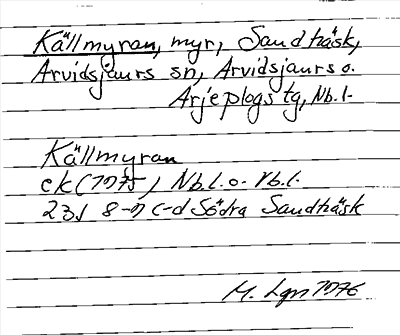 Källmyran, myr, Sandträsk,
Arvidsjaurs sn, Arvidsjaurs o.
Arjeplogs tg, Nb.l.
Källmyran
ek (1975) Nb.l. o. Vb.l.
23J 8-9 c-d Södra Sandträsk
M. Lgn 1976